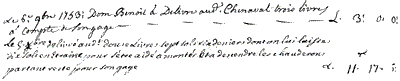 Le 6e 9bre 1753: Dom Benoit a Delivré aud. Chenaval trois livres L. 3. 0. 0
à compte de son gage
Le delivré aud. douze livres sept sols six deniers dont on lui laisse
dix sols en traine pour s'être aidé a monter et a descendre les chauderons
partant reste pour son gage L. 11. 17.